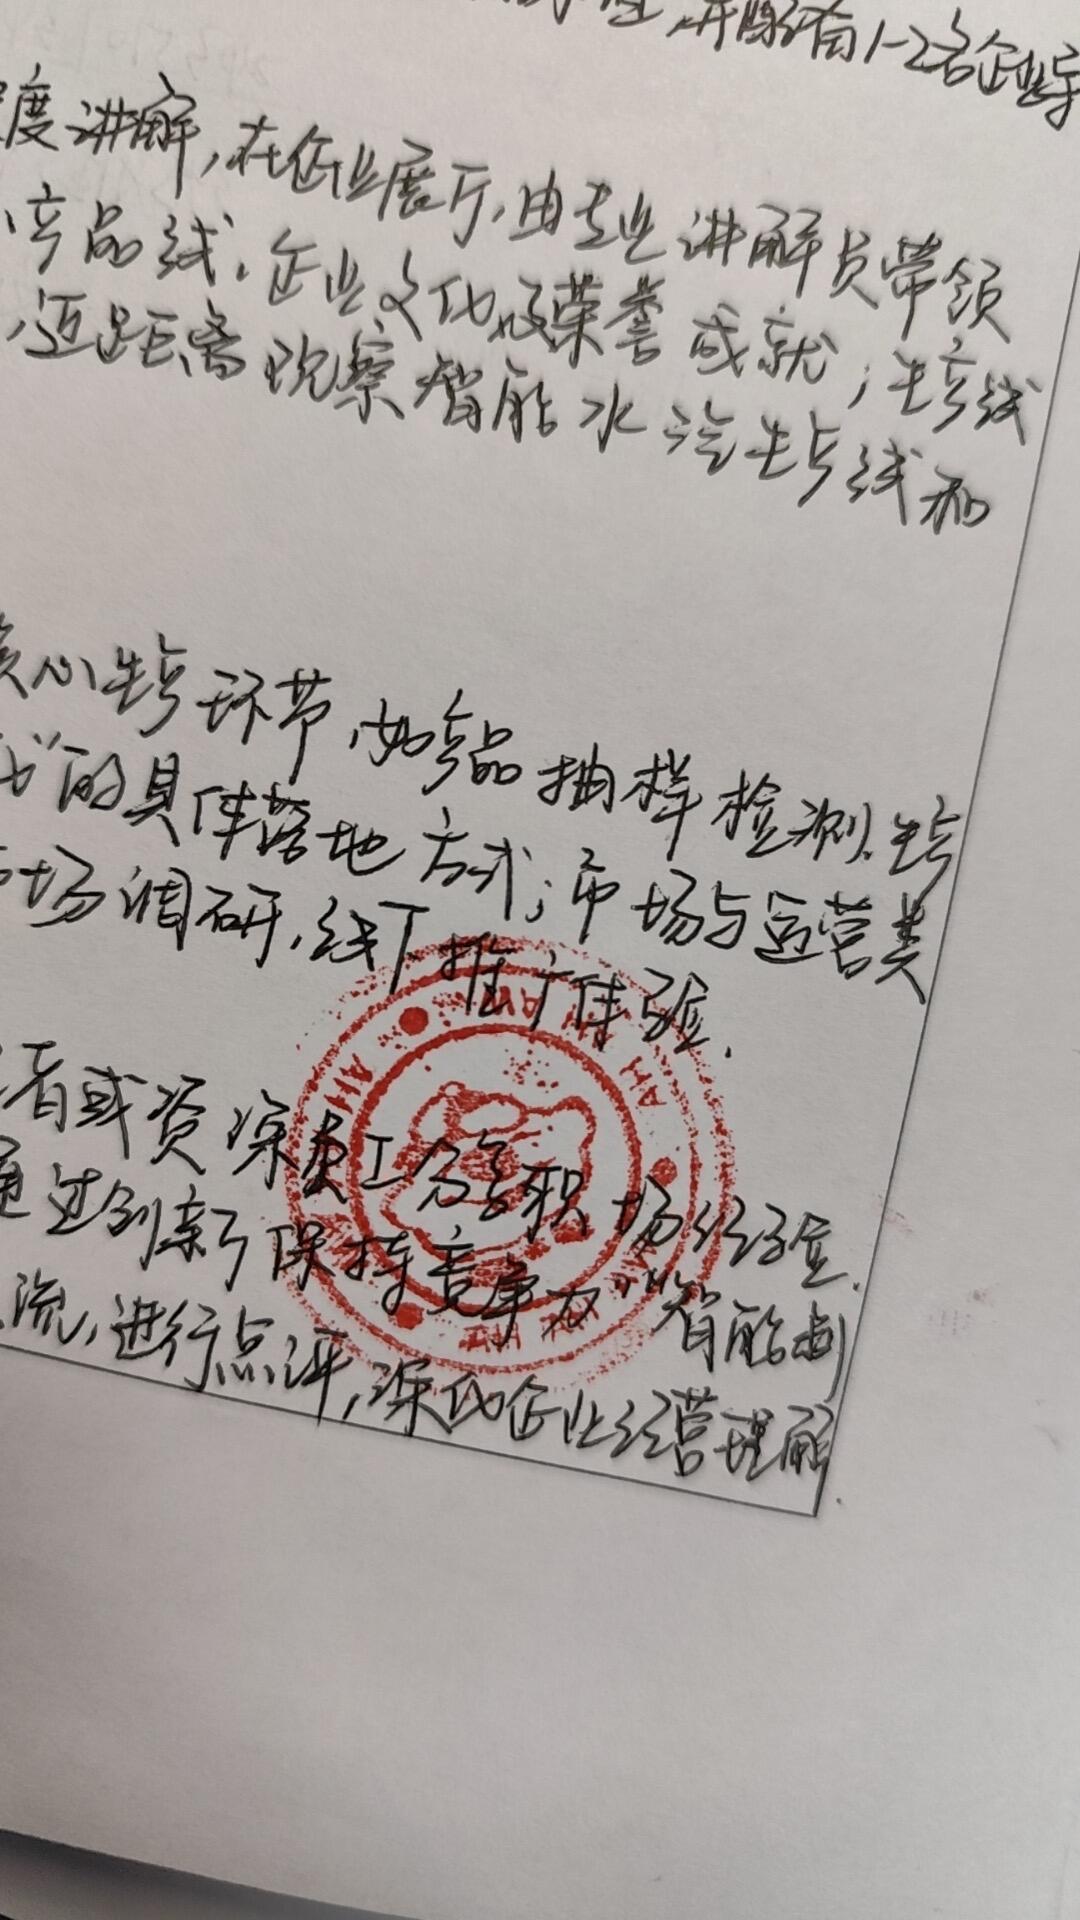 并配有1-2名企业导
度讲解,在企业展厅,由专业讲解员带领
产品线、企业文化及荣誉成就;生产线
近距离观察智能水汽生产线和
核心生产环节,如产品抽样检测、生产
的具体落地方式;市场与运营类
市场调研,线下推广体验.
者或资深员工分享职场经验.
通过创新保持竞争力"“智能制
流,进行点评,深化企业经营理解.